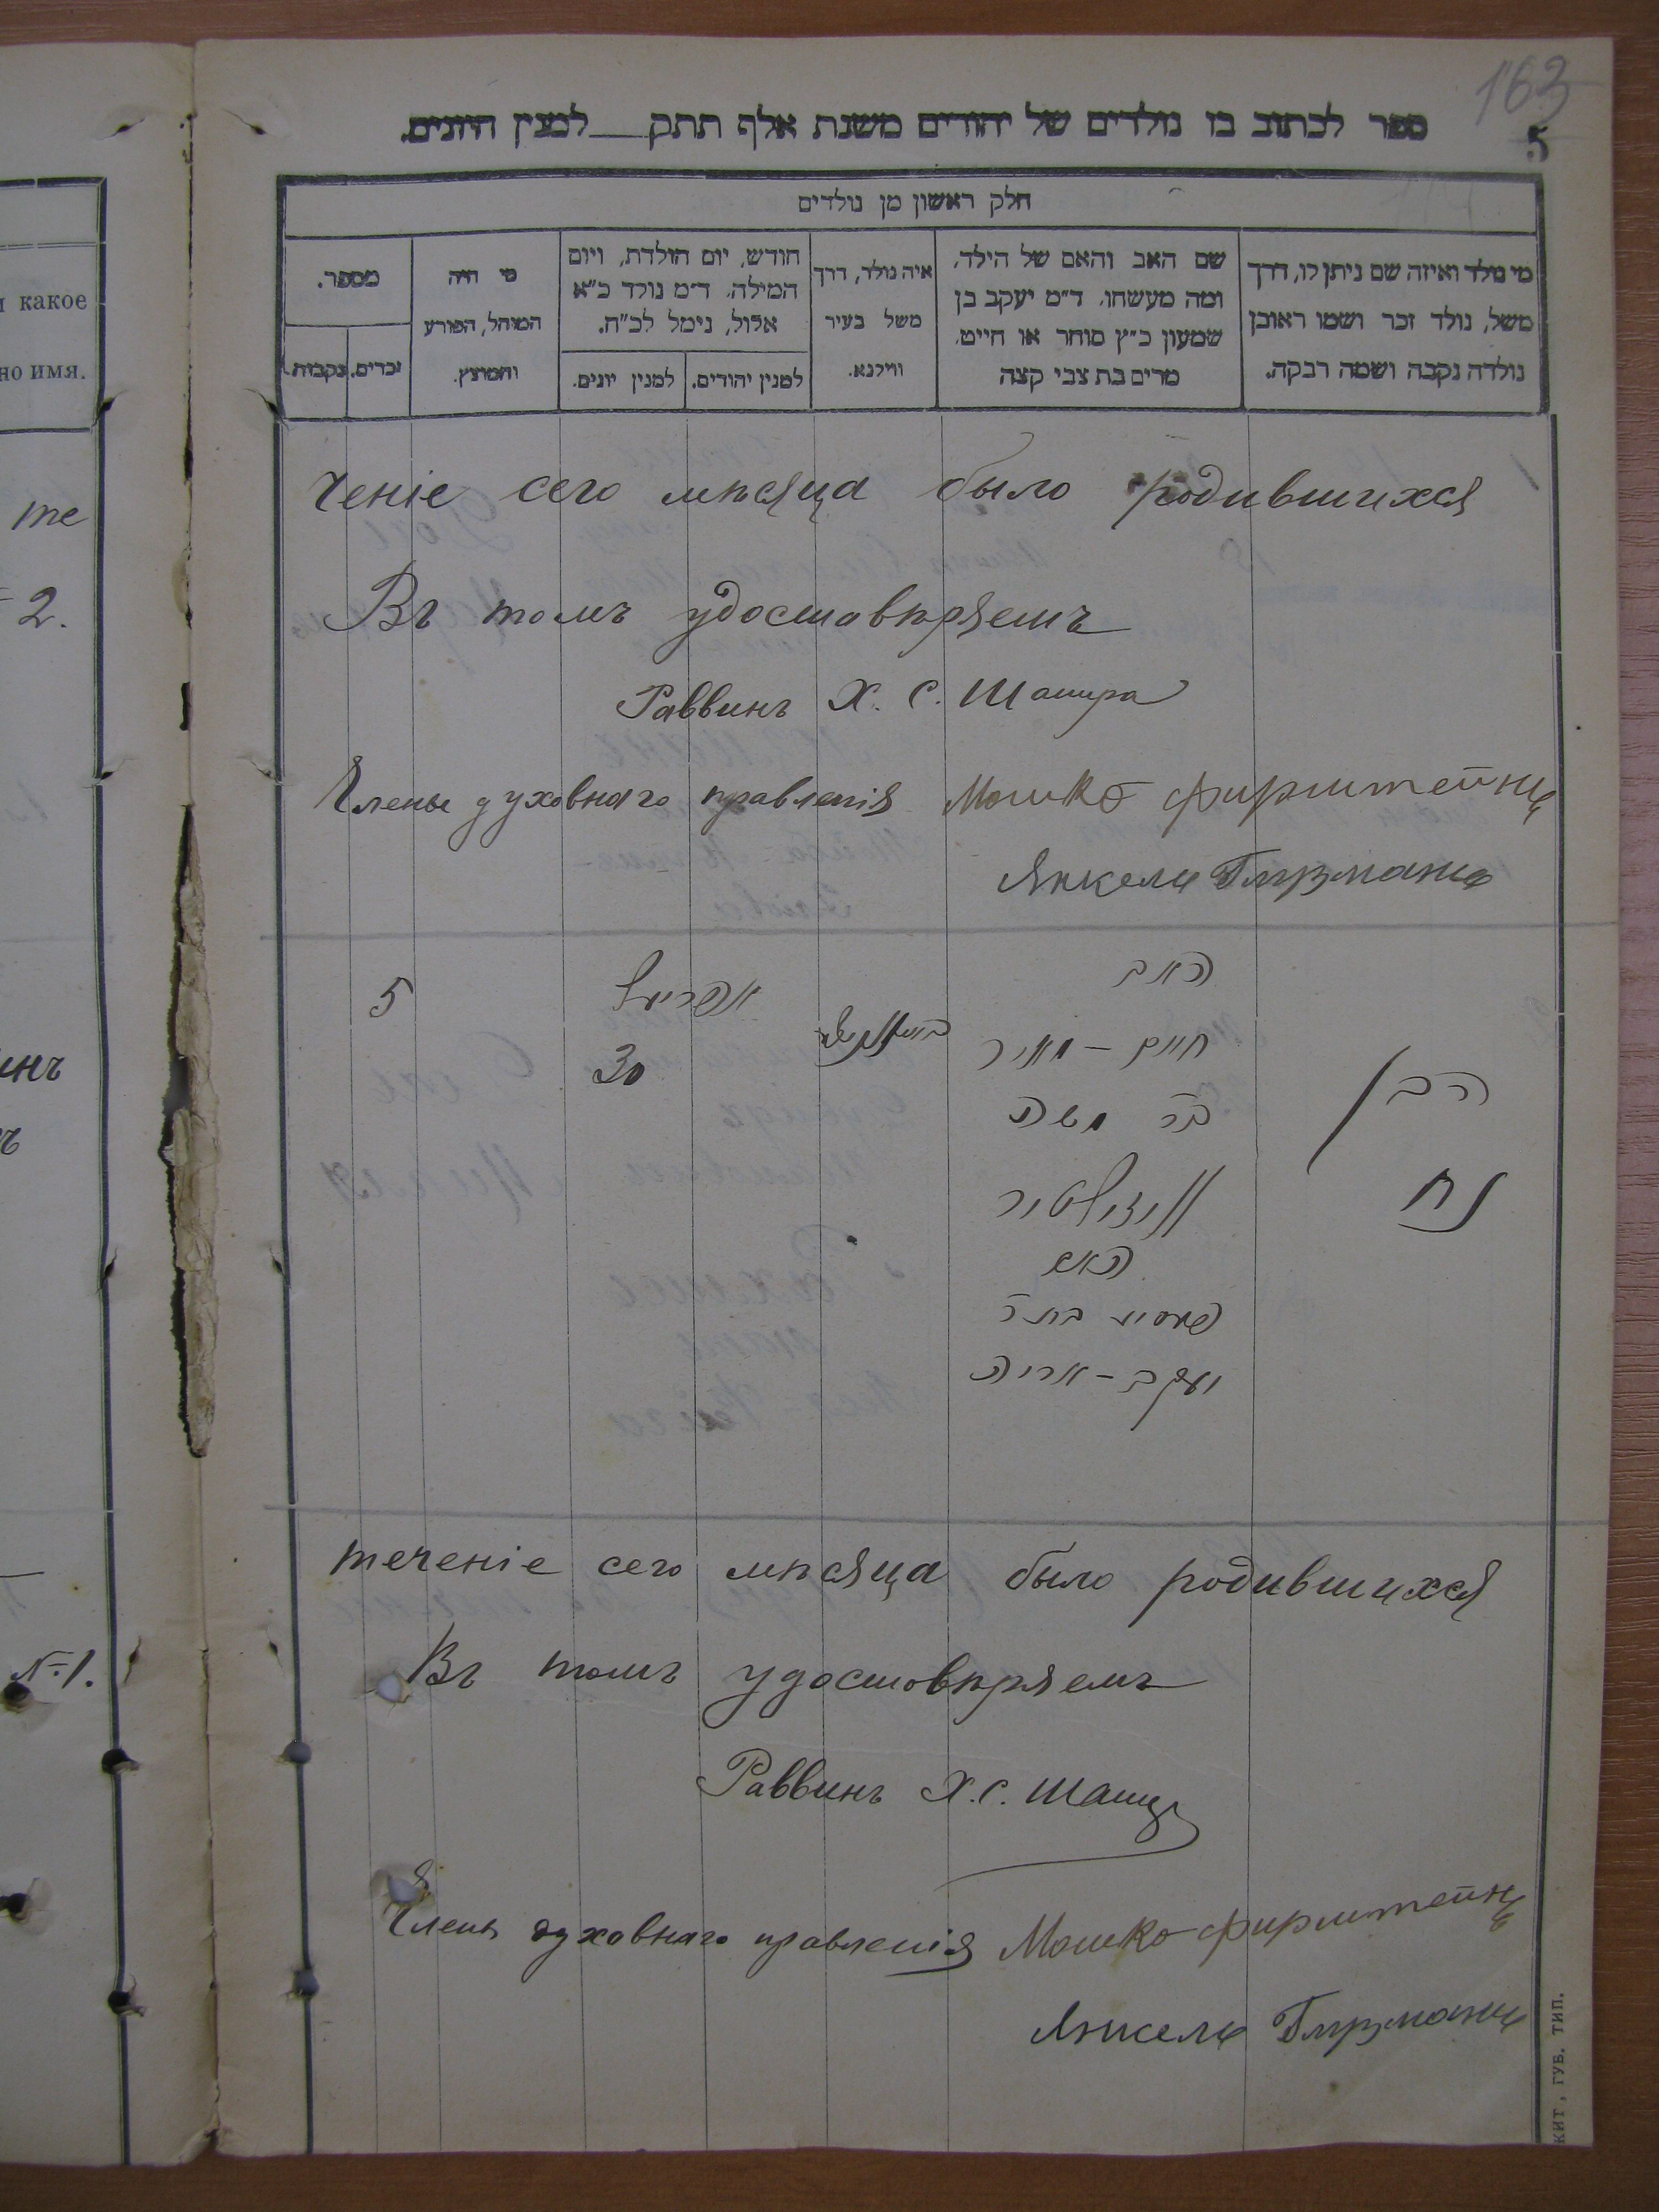 163
5
ספר לכתוב בו נולדים של יהודים משנת אלף תתק למנין היונים.
חלק ראשון מן נולדים
מי נולד ואיזה שם ניתן לו, דרך
משל, נולד זכר ושמו ראובן
נולדה נקבה ושמה רבקה.
שם האב והאם של הילד,
ומה מעשהו. ד"מ יעקב בן
שמעון כ"ץ סוחר או חייט.
מרים בת צבי קצה
איה נולד, דרך
משל בעיר
ווילנא.
חודש, יום הולדת, ויום
המילה. ד"מ נולד כ"א
אלול, נימל לכ"ח.
למנין יהודים.
למנין יונים.
מי היה
המוהל, הפורע
והמוצץ.
מספר.
זכרים.
נקבות.
и какое
но имя.
те
2.
инъ
ъ
№ 1.
ченіе сего мѣсяца было родившихся
Въ томъ удостовѣряемъ
Раввинъ Х. С. Шапира
Члены духовнаго правленія Мошко Фирштейнъ
Янкель Глузманъ
הבן
נח
האב
חיים - מאיר
בר משה
האם
בת ר
יעקב - אריה
אפריל
30
5
теченіе сего мѣсяца было родившихся
Въ томъ удостовѣряемъ
Раввинъ Х. С. Шапир
Члены духовнаго правленія Мошко Фирштейнъ
Янкель Глузманъ
КИТ, ГУБ. ТИП.